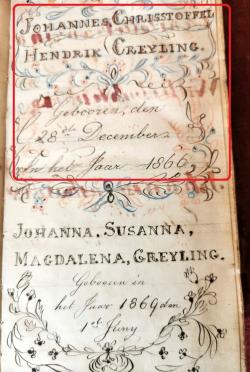 JOHANNES, CHRISSTOFFEL
HENDRIK GREYLING.
Gebooren, den
28ste December
in het Jaar 1866
JOHANNA, SUSANNA,
MAGDALENA, GREYLING.
Gebooren in
het Jaar 1869 den
1st Juny